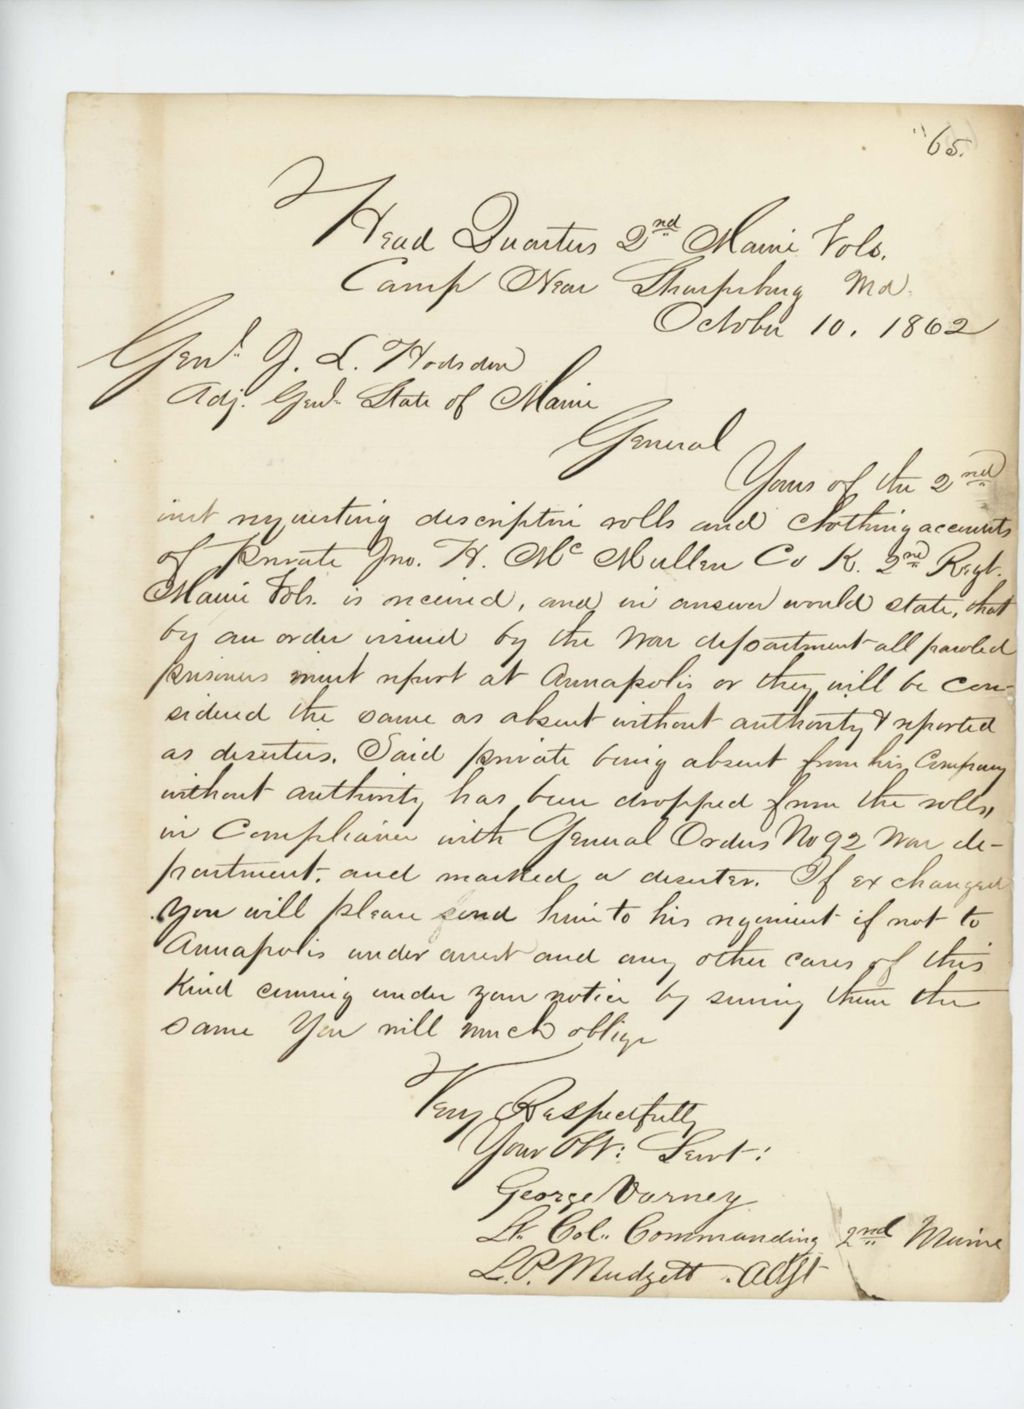 "65.
Head Quarters 2nd Maine Vols.
Camp Near Sharpsburg Md.
October 10. 1862
Genl. J. L. Hodsdon
Adj. Genl. State of Maine
General
Yours of the 2nd
inst requesting descriptive rolls and Clothing accounts
of Private Jno. H. Mc Mullen Co K. 2nd Regt.
Maine Vols. is received, and in answer would state, that
by an order issued by the War department all paroled
prisoners must report at Annapolis or they will be con-
sidered the same as absent without authority & reported
as deserters. Said private being absent from his Company
without authority has been dropped from the rolls,
in Compliance with General Orders No 92 War de-
partment. and marked a deserter. If exchanged
You will please send him to his regiment if not to
Annapolis under arrest and any other cases of this
Kind coming under your notice by serving them the
same You will much oblige
Very Respectfully
Your Obt: Servt:
George Varney
Lt. Col. Commanding 2nd Maine
L.P. Mudgett. Adjt